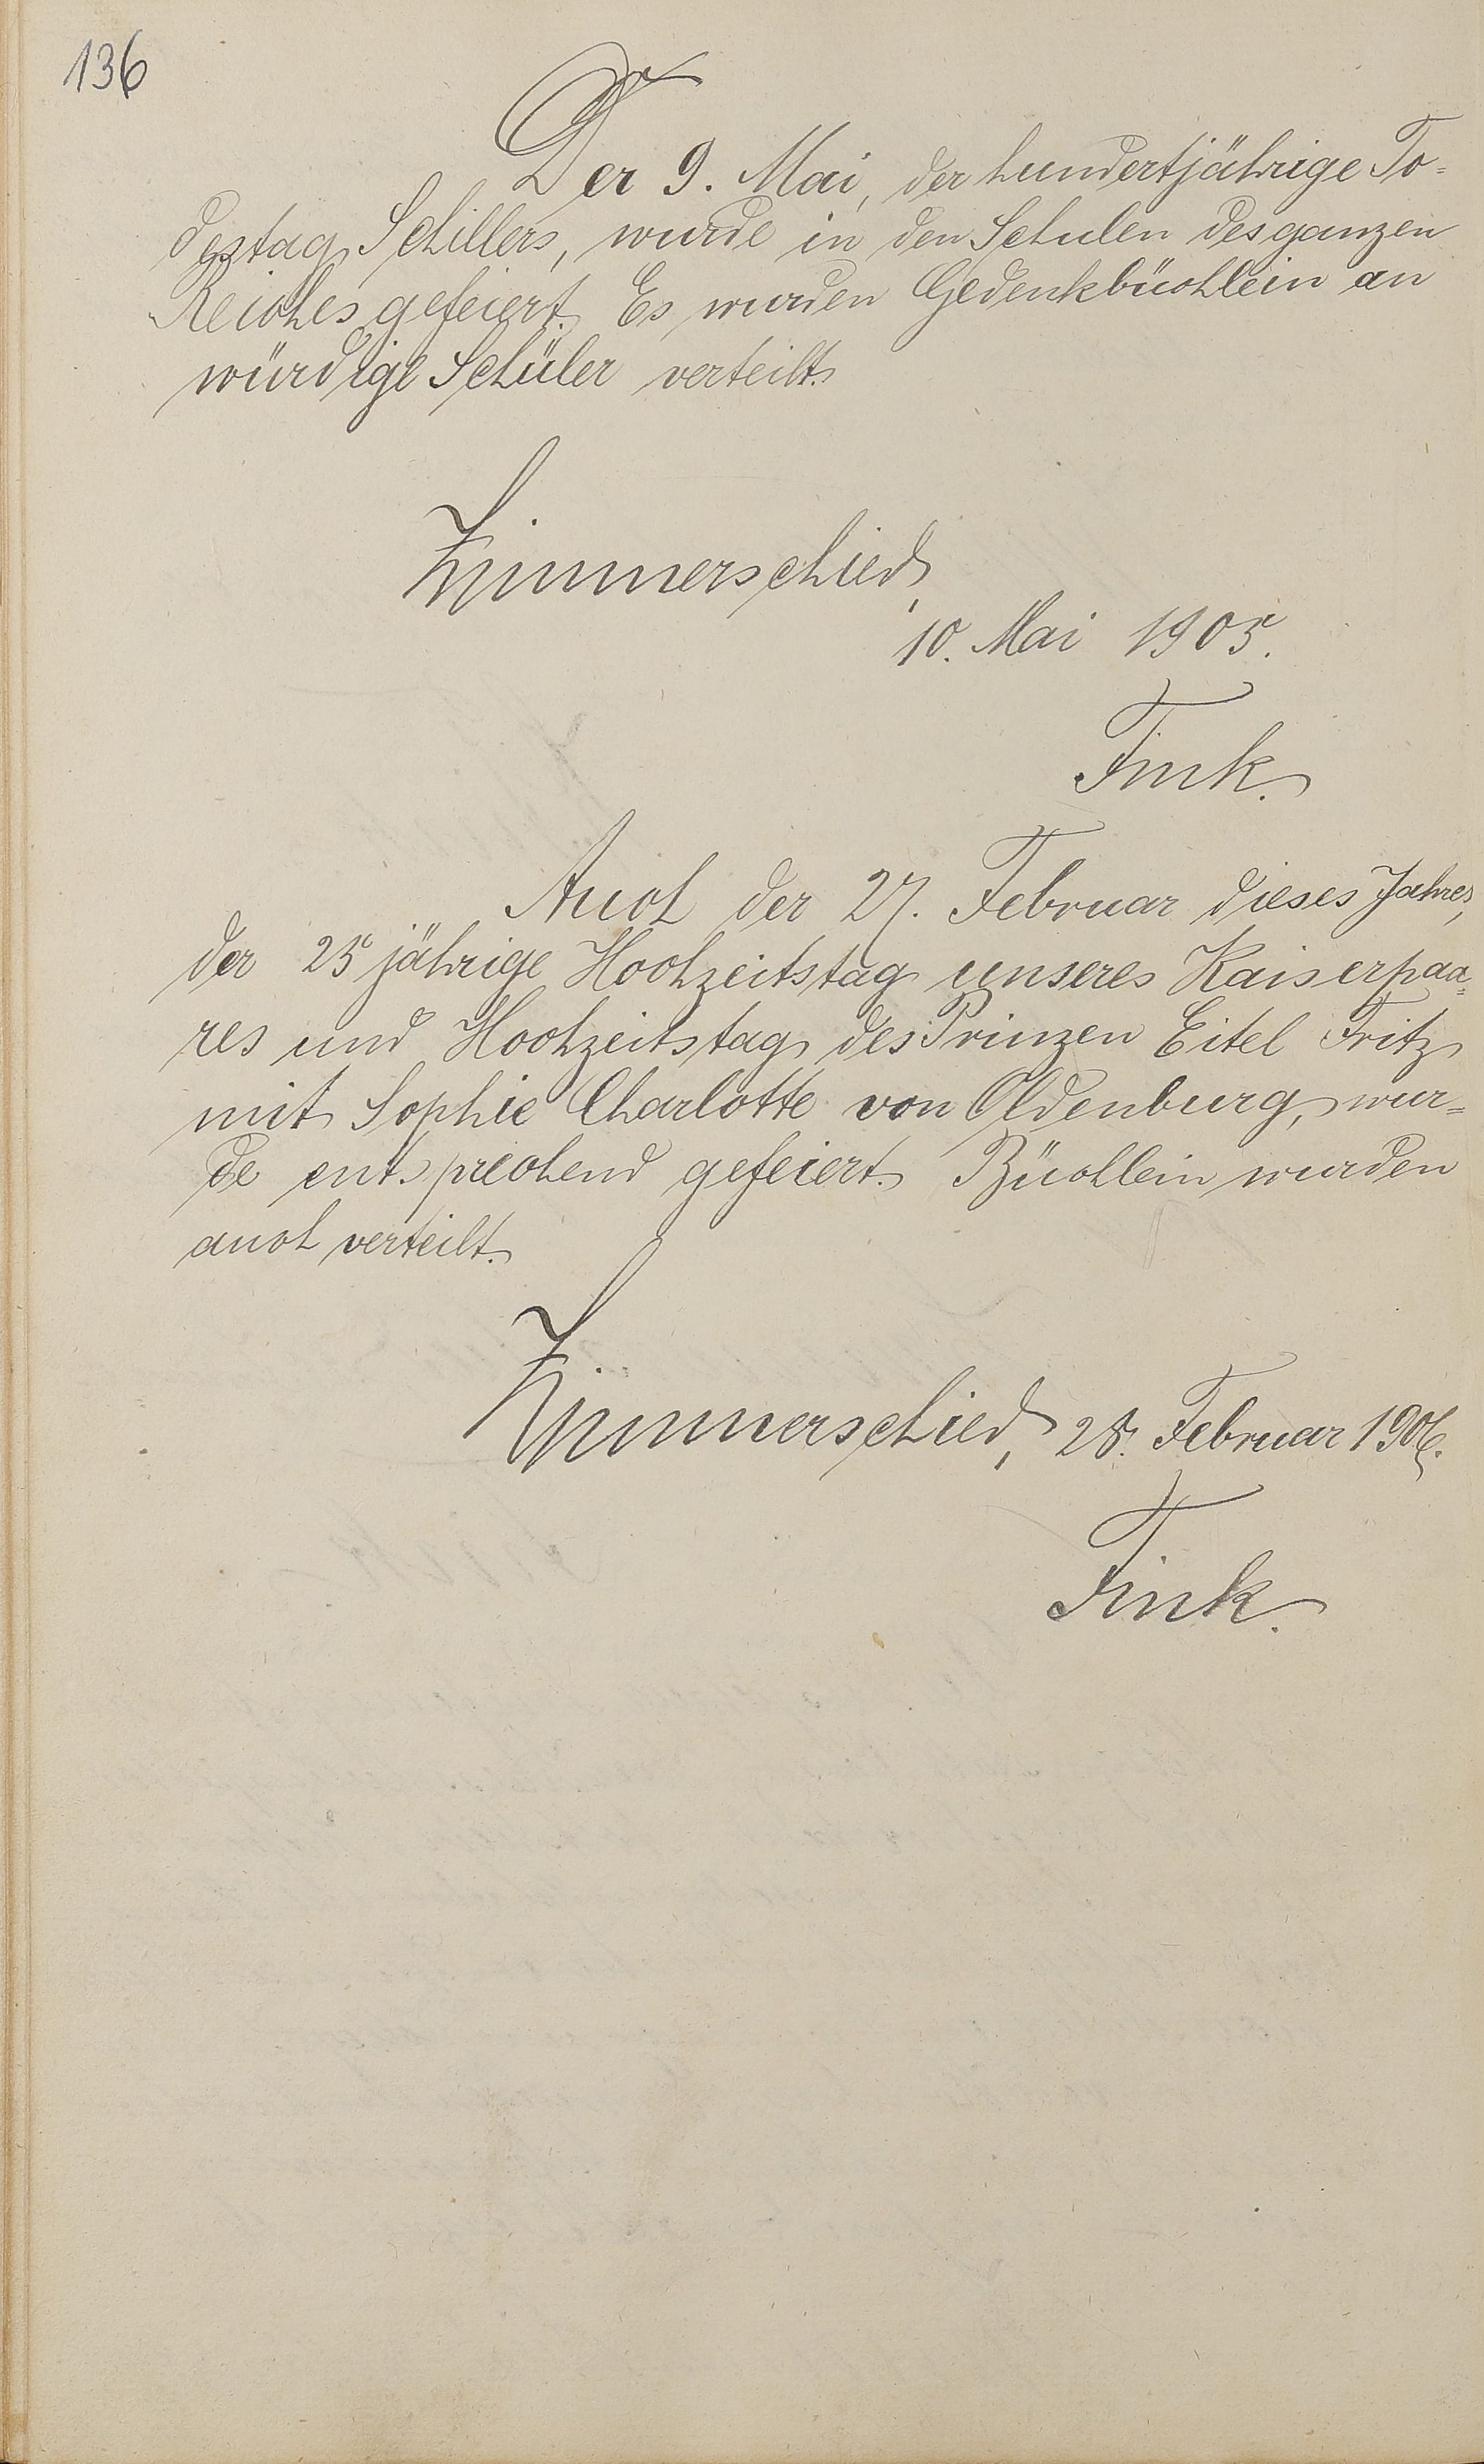 136
Der 9. Mai, der hundertjährige To=
destag Schillers, wurde in den Schulen des ganzen
Reiches gefeiert. Es wurden Gedenkbüchlein an
würdige Schüler verteilt.
Zimmerschied,
10. Mai 1905.
Fink.
Auch der 27. Februar dieses Jahres,
der 25 jährige Hochzeitstag unseres Kaiserpaa=
res und Hochzeitstag des Prinzen Eitel Fritz
mit Sophie Charlotte von Oldenburg, wur=
de entsprechend gefeiert. Büchlein wurden
auch verteilt.
Zimmerschied, 28. Februar 1906.
Fink.